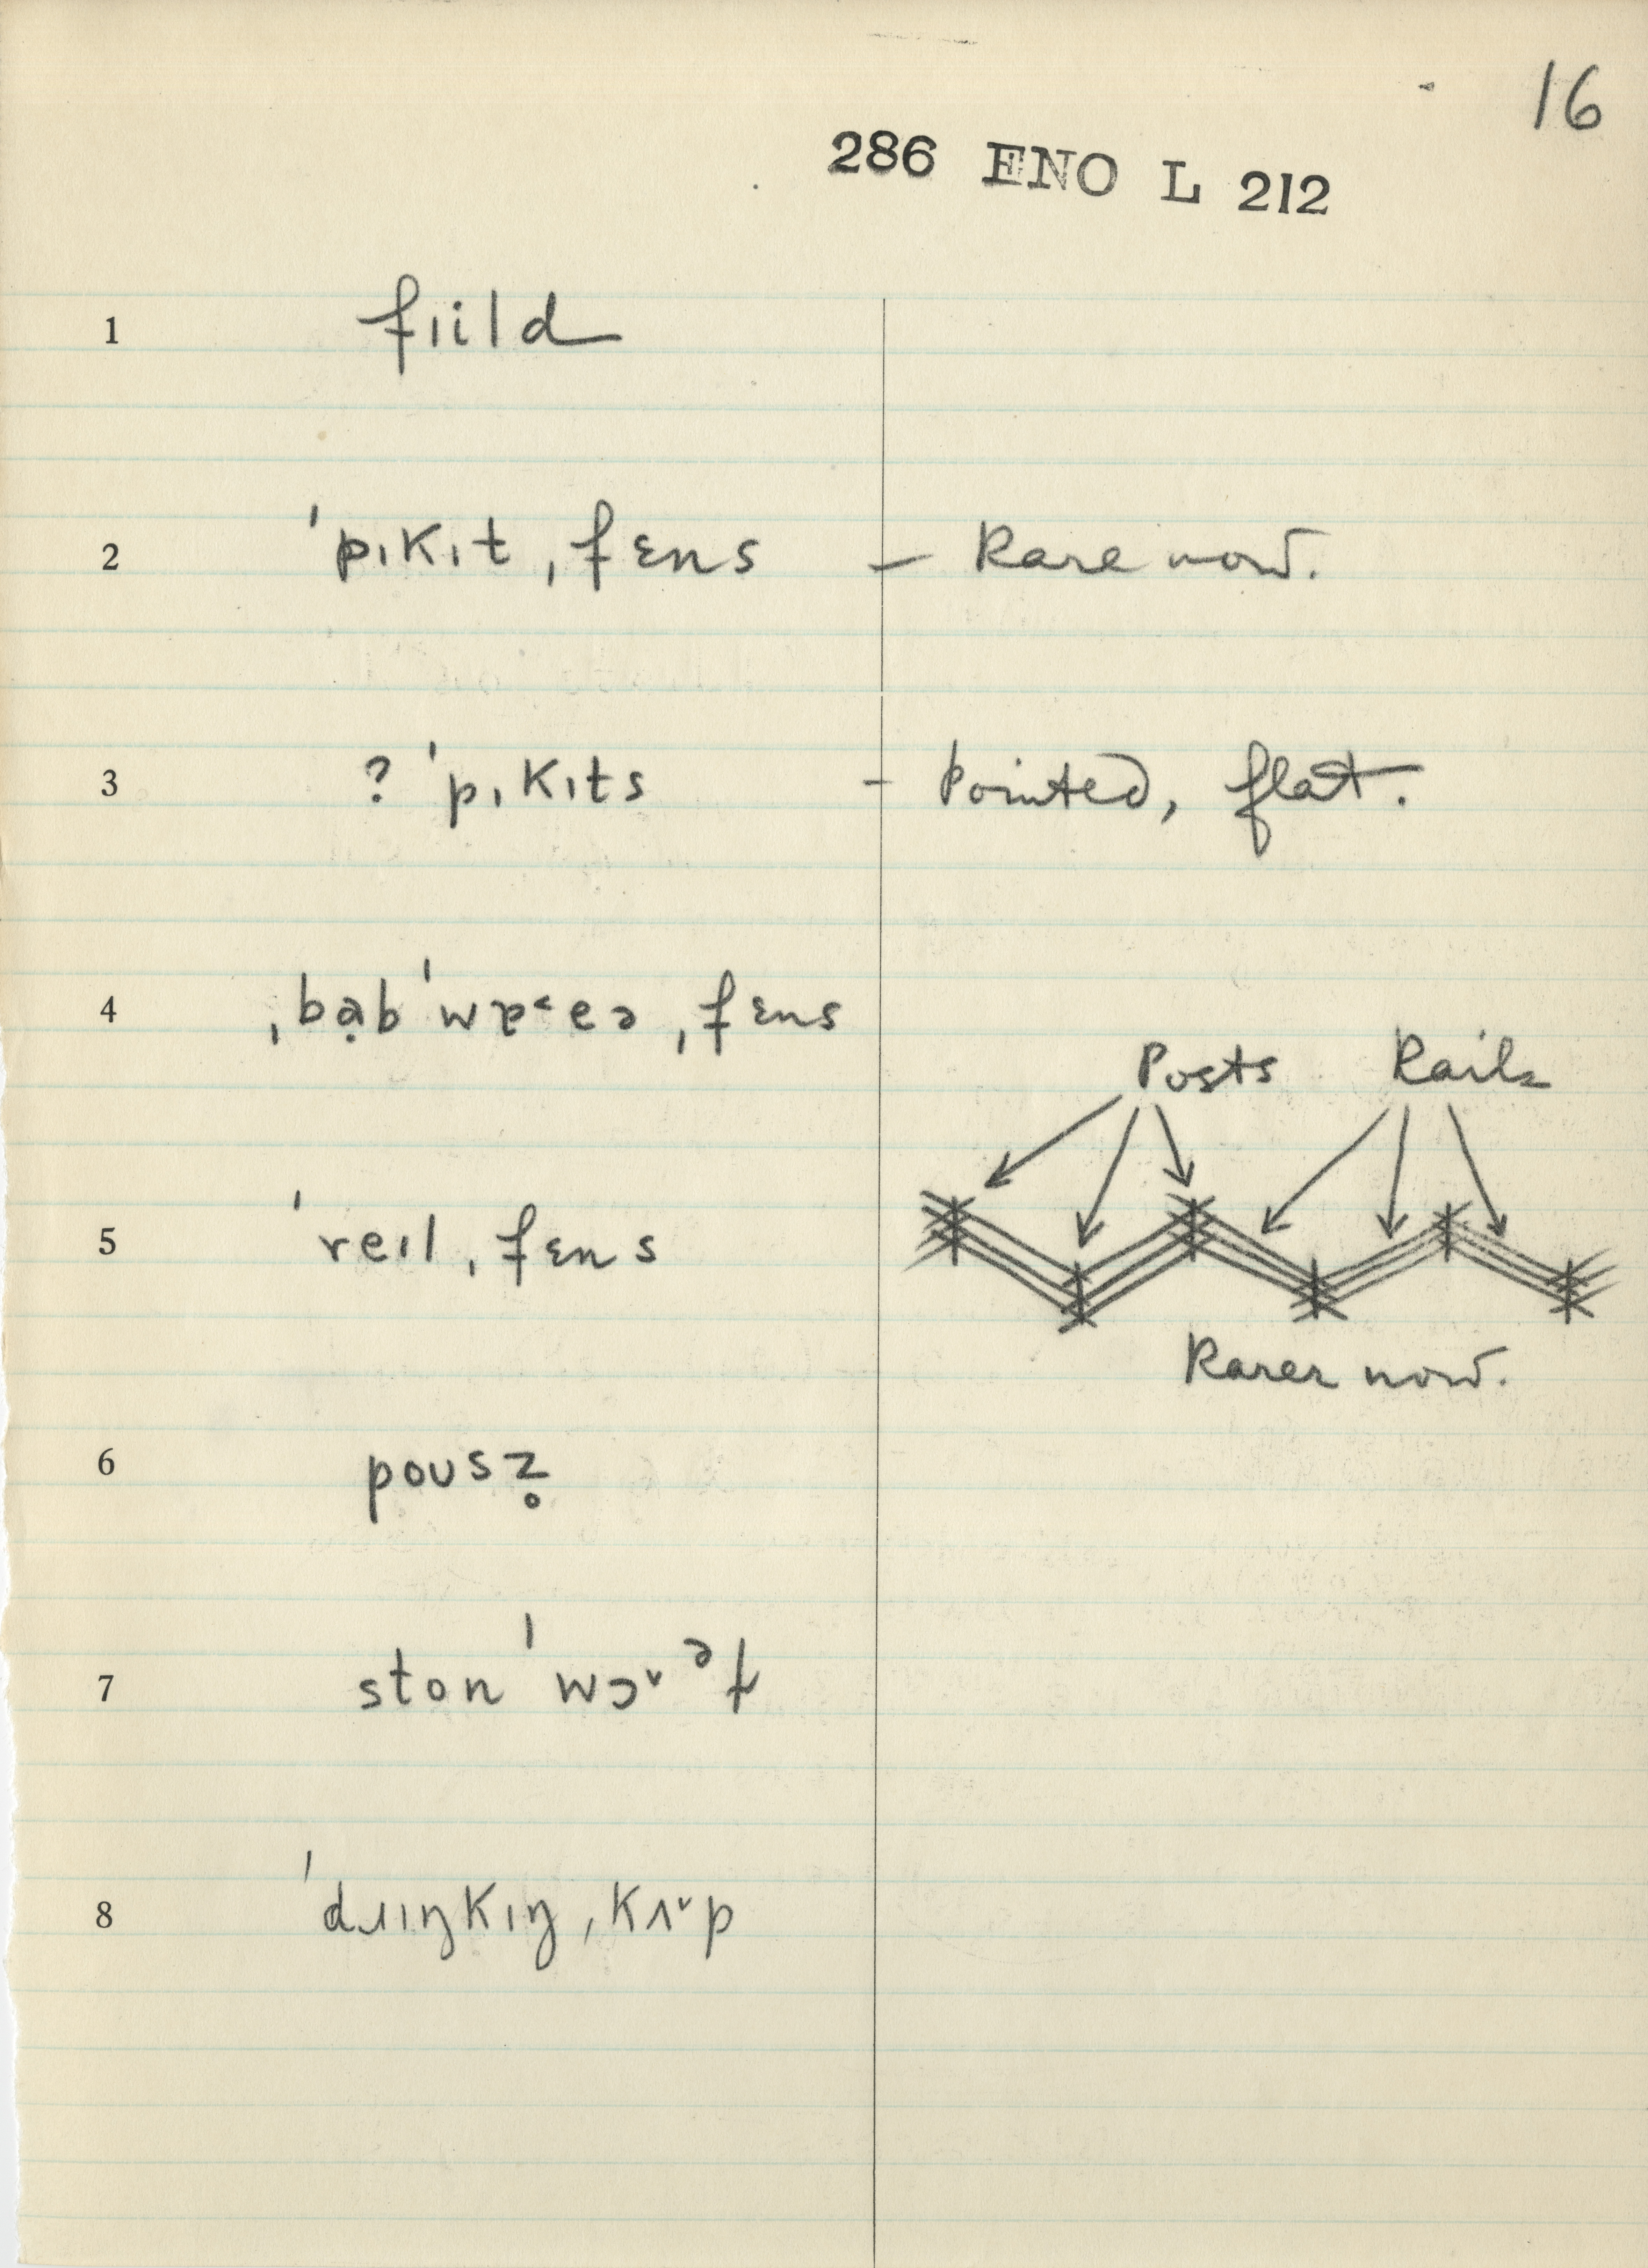 16
286 ENO L 212
1 fɪild
2 ˈpɪkɪt ˌfɛns – Rare now.
3 ? ˈpɪkɪts – Pointed, flat.
4 ˌbạbˈwɐ˂eə ˌfɛns
Posts Rails
5 ˈreɪl ˌfɛns
Rarer now.
6 poʊsz̥
7 stonˈwɔ˅ᵊɫ
8 ˈdɹɪŋkɪŋ ˌkʌ˅p